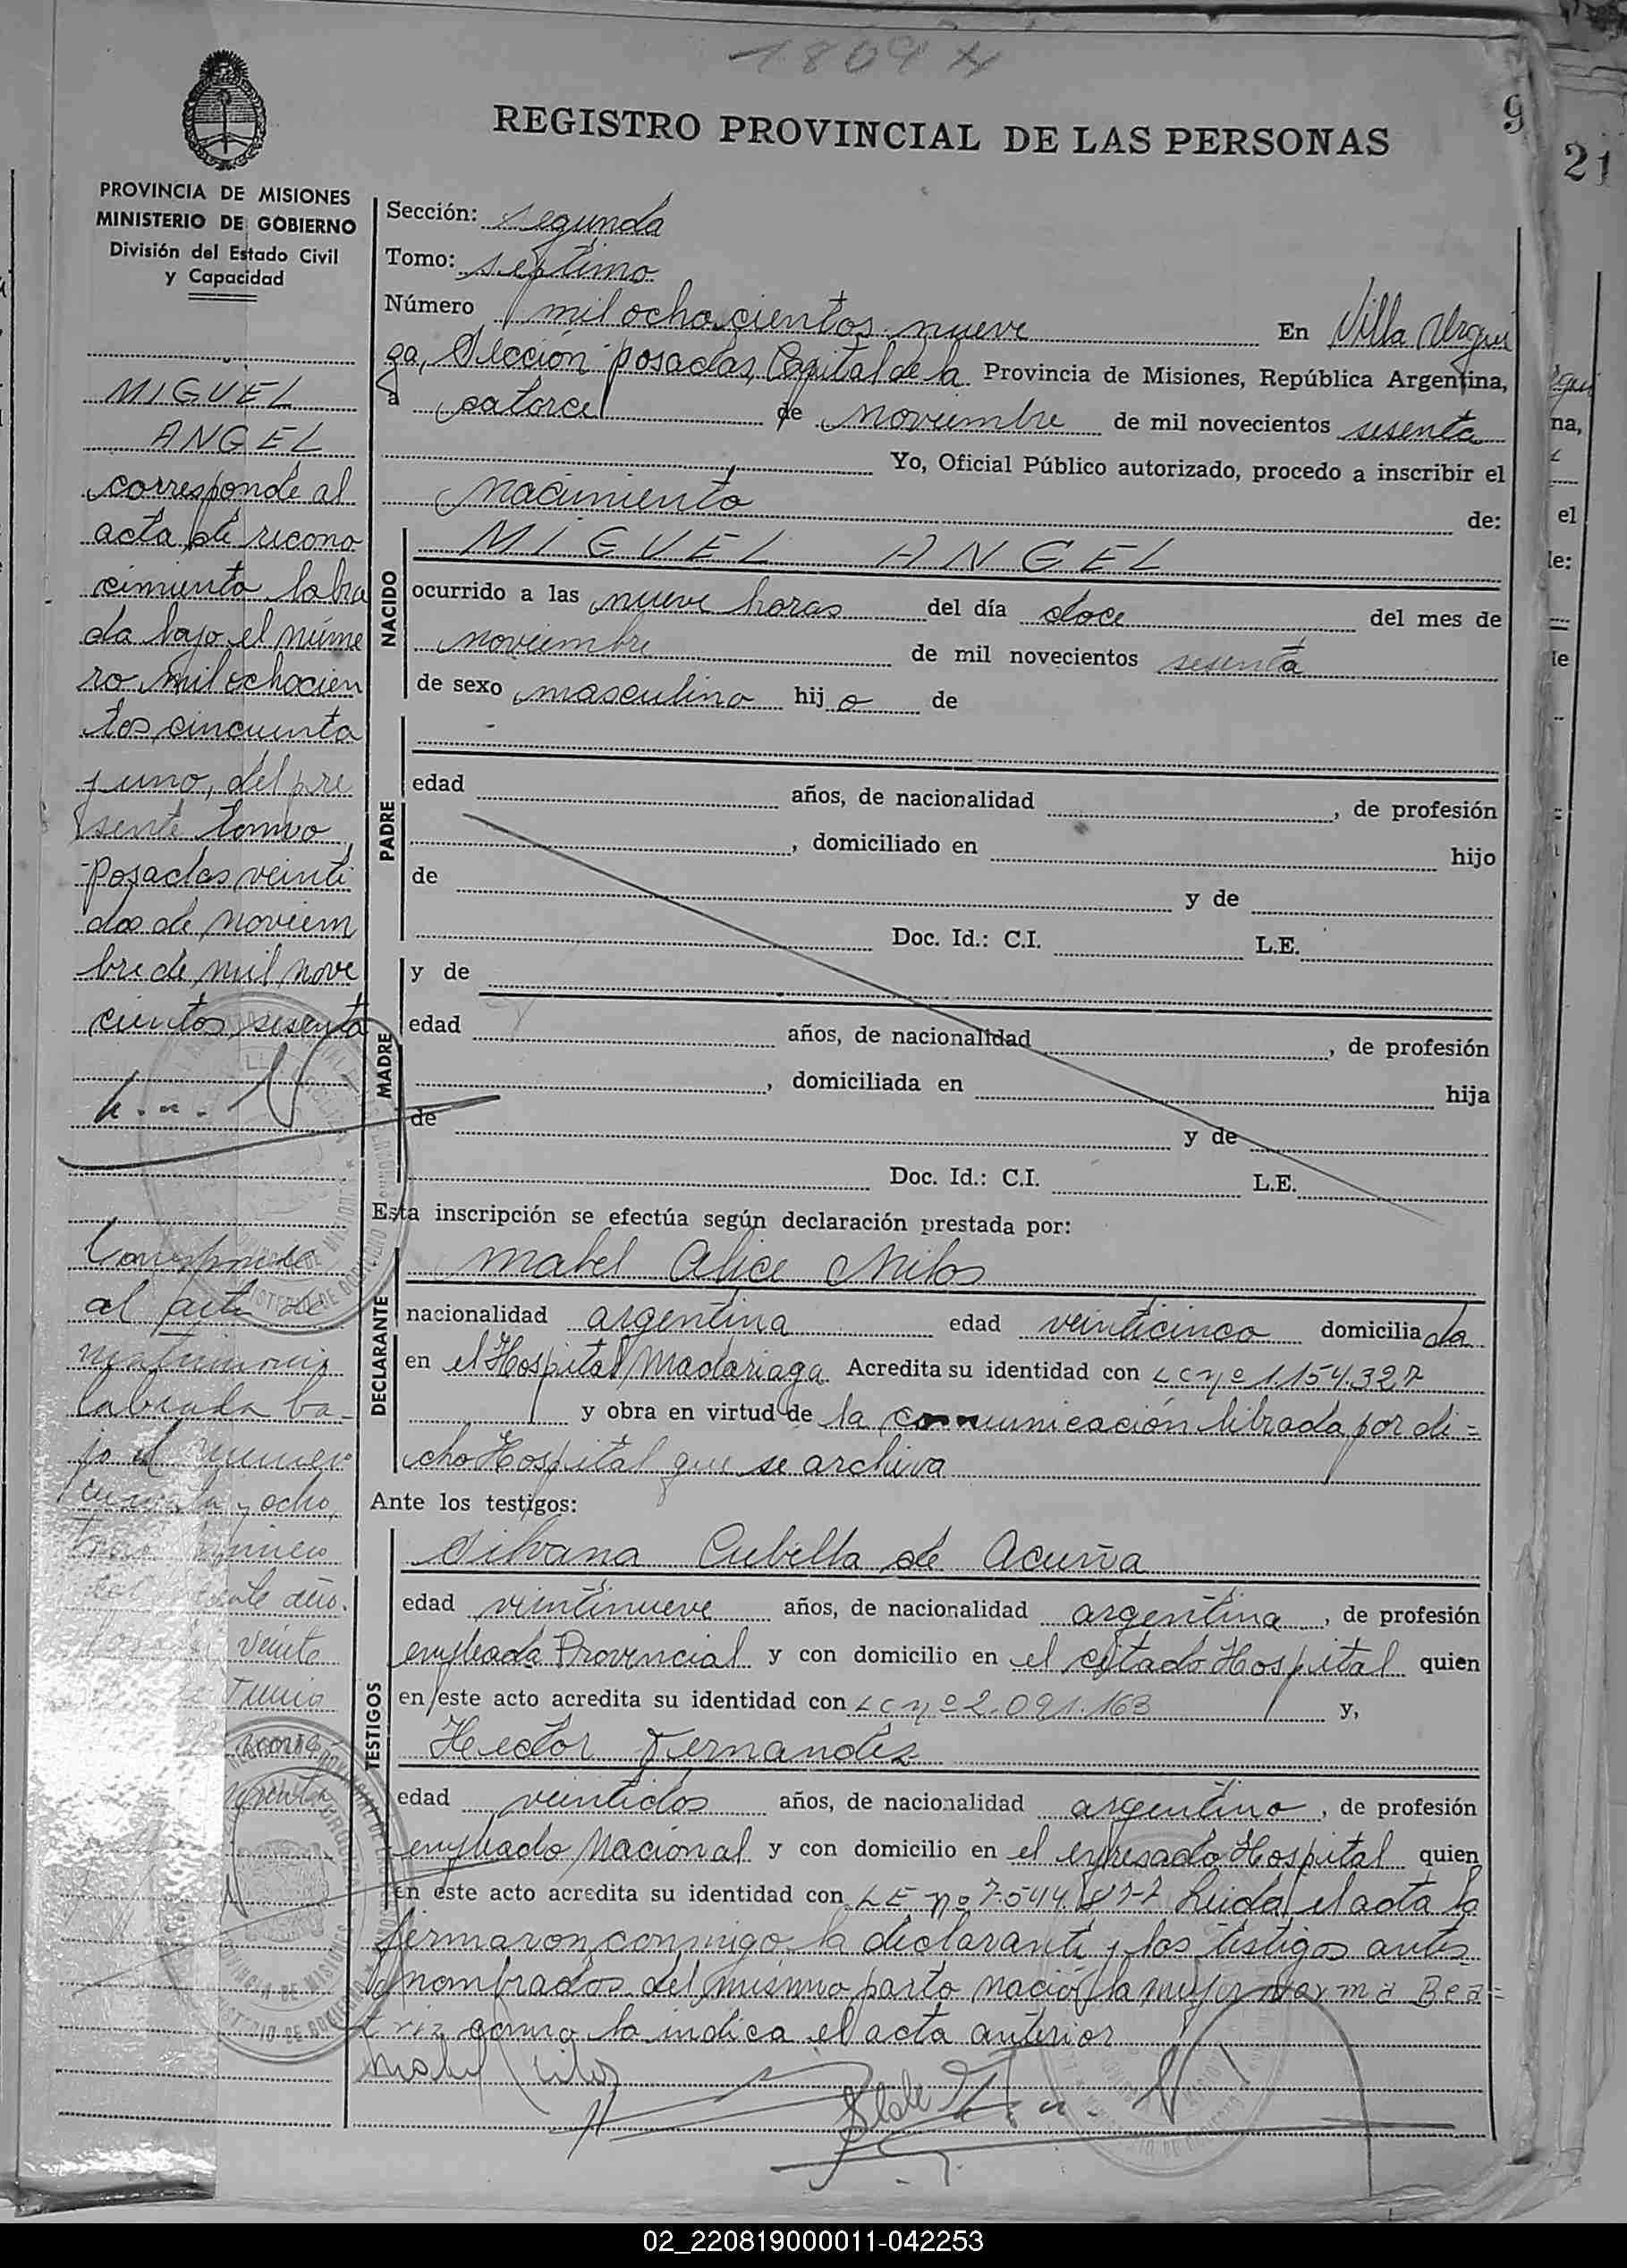 1809
REGISTRO PROVINCIAL DE LAS PERSONAS
9
21
PROVINCIA DE MISIONES
MINISTERIO DE GOBIERNO
División del Estado Civil
y Capacidad
MIGUEL
ANGEL
corresponde al
acta de recono
cimiento labra
da bajo el núme
ro mil ochocien
tos cincuenta
y uno, del pre
sente tomo
Posadas veinti
dos de noviem
bre de mil nove
cientos sesenta
Corresponde
al acta de
matrimonio
labrada ba-
jo el numero
cuarenta y ocho,
Tomo primero
del año.
veinte
Junio
Sección: segunda
Tomo: septimo
Número mil ochocientos nueve En Villa Urqui
za, Sección Posadas, Capital de la Provincia de Misiones, República Argentina,
a catorce de noviembre de mil novecientos sesenta
Yo, Oficial Público autorizado, procedo a inscribir el
nacimiento de:
NACIDO
MIGUEL ANGEL
ocurrido a las nueve horas del día doce del mes de
noviembre de mil novecientos sesenta
de sexo masculino hijo de
PADRE
edad años, de nacionalidad , de profesión
, domiciliado en hijo
de y de
Doc. Id.: C.I. L.E.
MADRE
y de
edad años, de nacionalidad , de profesión
, domiciliada en hija
de y de
Doc. Id.: C.I. L.E.
Esta inscripción se efectúa según declaración prestada por:
DECLARANTE
Mabel Alice Milos
nacionalidad argentina edad veinticinco domiciliada
en el Hospital Madariaga Acredita su identidad con LC nº 1.154.327
y obra en virtud de la comunicación librada por di=
cho Hospital que se archiva
Ante los testigos:
TESTIGOS
Silvana Cubella de Acuña
edad veintinueve años, de nacionalidad argentina, de profesión
empleada Provincial y con domicilio en el citado Hospital quien
en este acto acredita su identidad con LC nº 2.091.163 y,
Hector Fernandez
edad veintidos años, de nacionalidad argentino, de profesión
empleado Nacional y con domicilio en el expresado Hospital quien
en este acto acredita su identidad con LE nº 7.544. Leida el acta la
firmaron conmigo la declarante y los testigos antes
nombrados. del mismo parto nació la mujer Norma Bea=
triz como lo indica el acta anterior
Mabel Milos
02_220819000011-042253